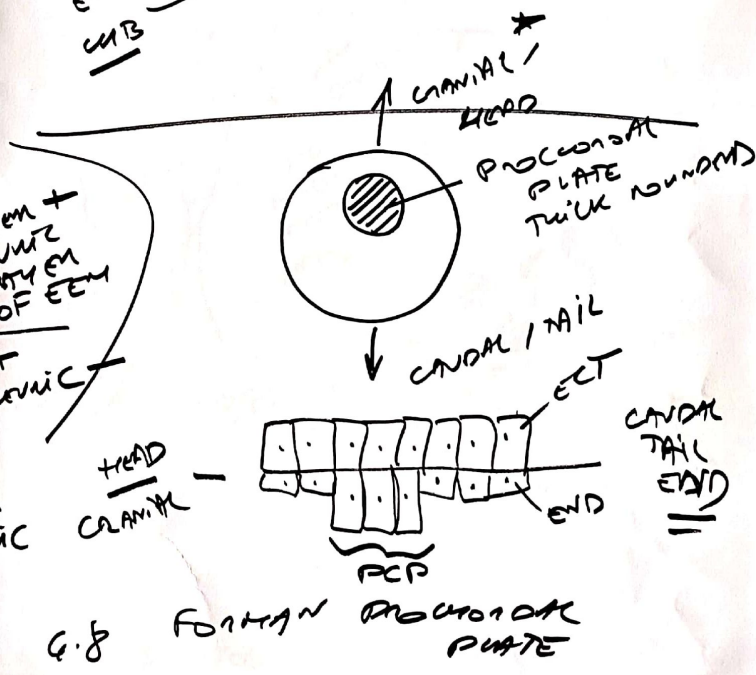 MB
CRANIAL /
HEAD
PROCHORDAL
PLATE
THICK ROUNDED
OF EEM
CAUDAL / TAIL
ECT
CAUDAL
TAIL
END
HEAD
CRANIAL
END
PCP
IC
6.8 FORMAN PROCHORDAL
PLATE